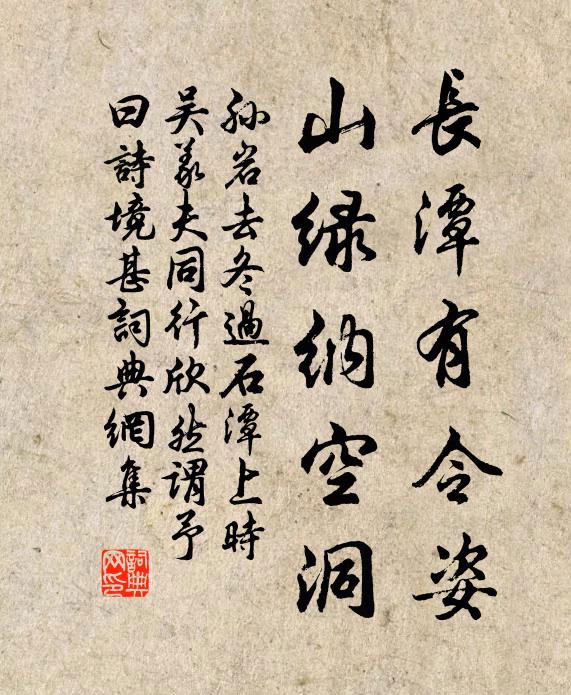 長潭有令姿
山緑納空洞
孙岩去冬過石潭上時
吴義夫同行欣然謂予
曰詩境甚詞典網集
詞典
网印